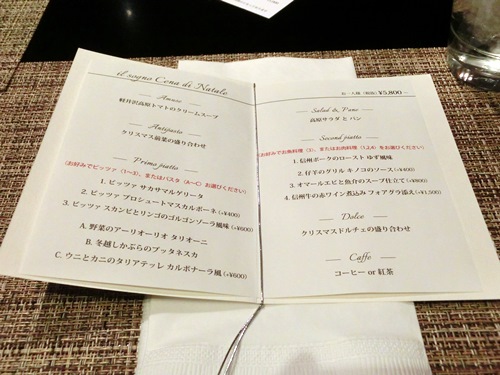 il sogno Cena di Natale
Amuse
軽井沢高原トマトのクリームスープ
Antipasto
クリスマス前菜の盛り合わせ
Primo piatto
(お好みでピッツァ（1~3）、またはパスタ（A~C）お選びください)
1. ピッツァ サカサマルゲリータ
2. ピッツァ プロシュートマスカルポーネ (+¥400)
3. ピッツァ スカンピとリンゴのゴルゴンゾーラ風味 (+¥600)
A. 野菜のアーリオーリオ タリオーニ
B. 冬越しかぶらのプッタネスカ
C. ウニとカニのタリアテッレ カルボナーラ風 (+¥600)
お一人様（税抜）¥5,800～
Salad & Pane
高原サラダ と パン
Second piatto
(お好みでお魚料理（3）、またはお肉料理（1,2,4）をお選びください)
1. 信州ポークのロースト ゆず風味
2. 仔羊のグリル キノコのソース (+¥400)
3. オマールエビと魚介のスープ仕立て (+¥800)
4. 信州牛の赤ワイン煮込み フォアグラ添え (+¥1,500)
Dolce
クリスマスドルチェの盛り合わせ
Caffe
コーヒー or 紅茶